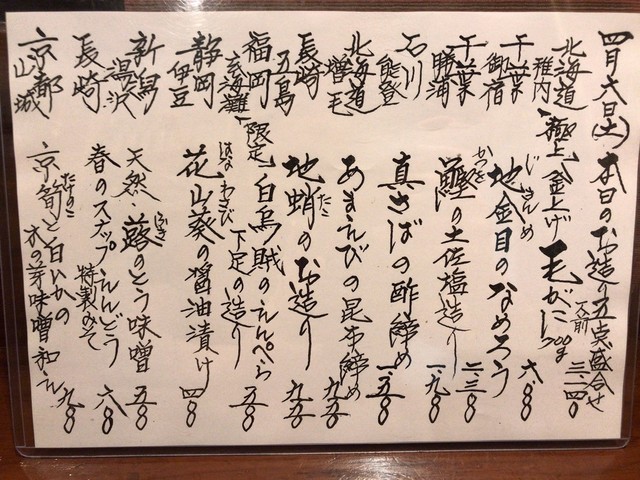 四月六日(土) 本日のお造り五点盛合せ 二人前 三、一四〇
北海道 稚内 極上 釜上げ 毛がに 500g 六、八〇〇
千葉 御宿 地金目のなめろう じきんめ 二、三〇〇
千葉 勝浦 鰹の土佐塩造り かつを 一、九〇〇
石川 能登 真さばの酢締め 一、五〇〇
北海道 増毛 あまえびの昆布締め 九五〇
長崎 五島 地蛸のお造り たこ 九五〇
福岡 玄海灘 限定 白烏賊のえんぺら 下足の造り 五〇〇
静岡 伊豆 花山葵の醤油漬け はなわさび 四〇〇
新潟 湯沢 天然 蕗のとう味噌 ふき 五〇〇
長崎 春のスナップえんどう 特製みそ 六八〇
京都 山城 京筍と白いかの たけのこ 木の芽味噌和え 九〇〇